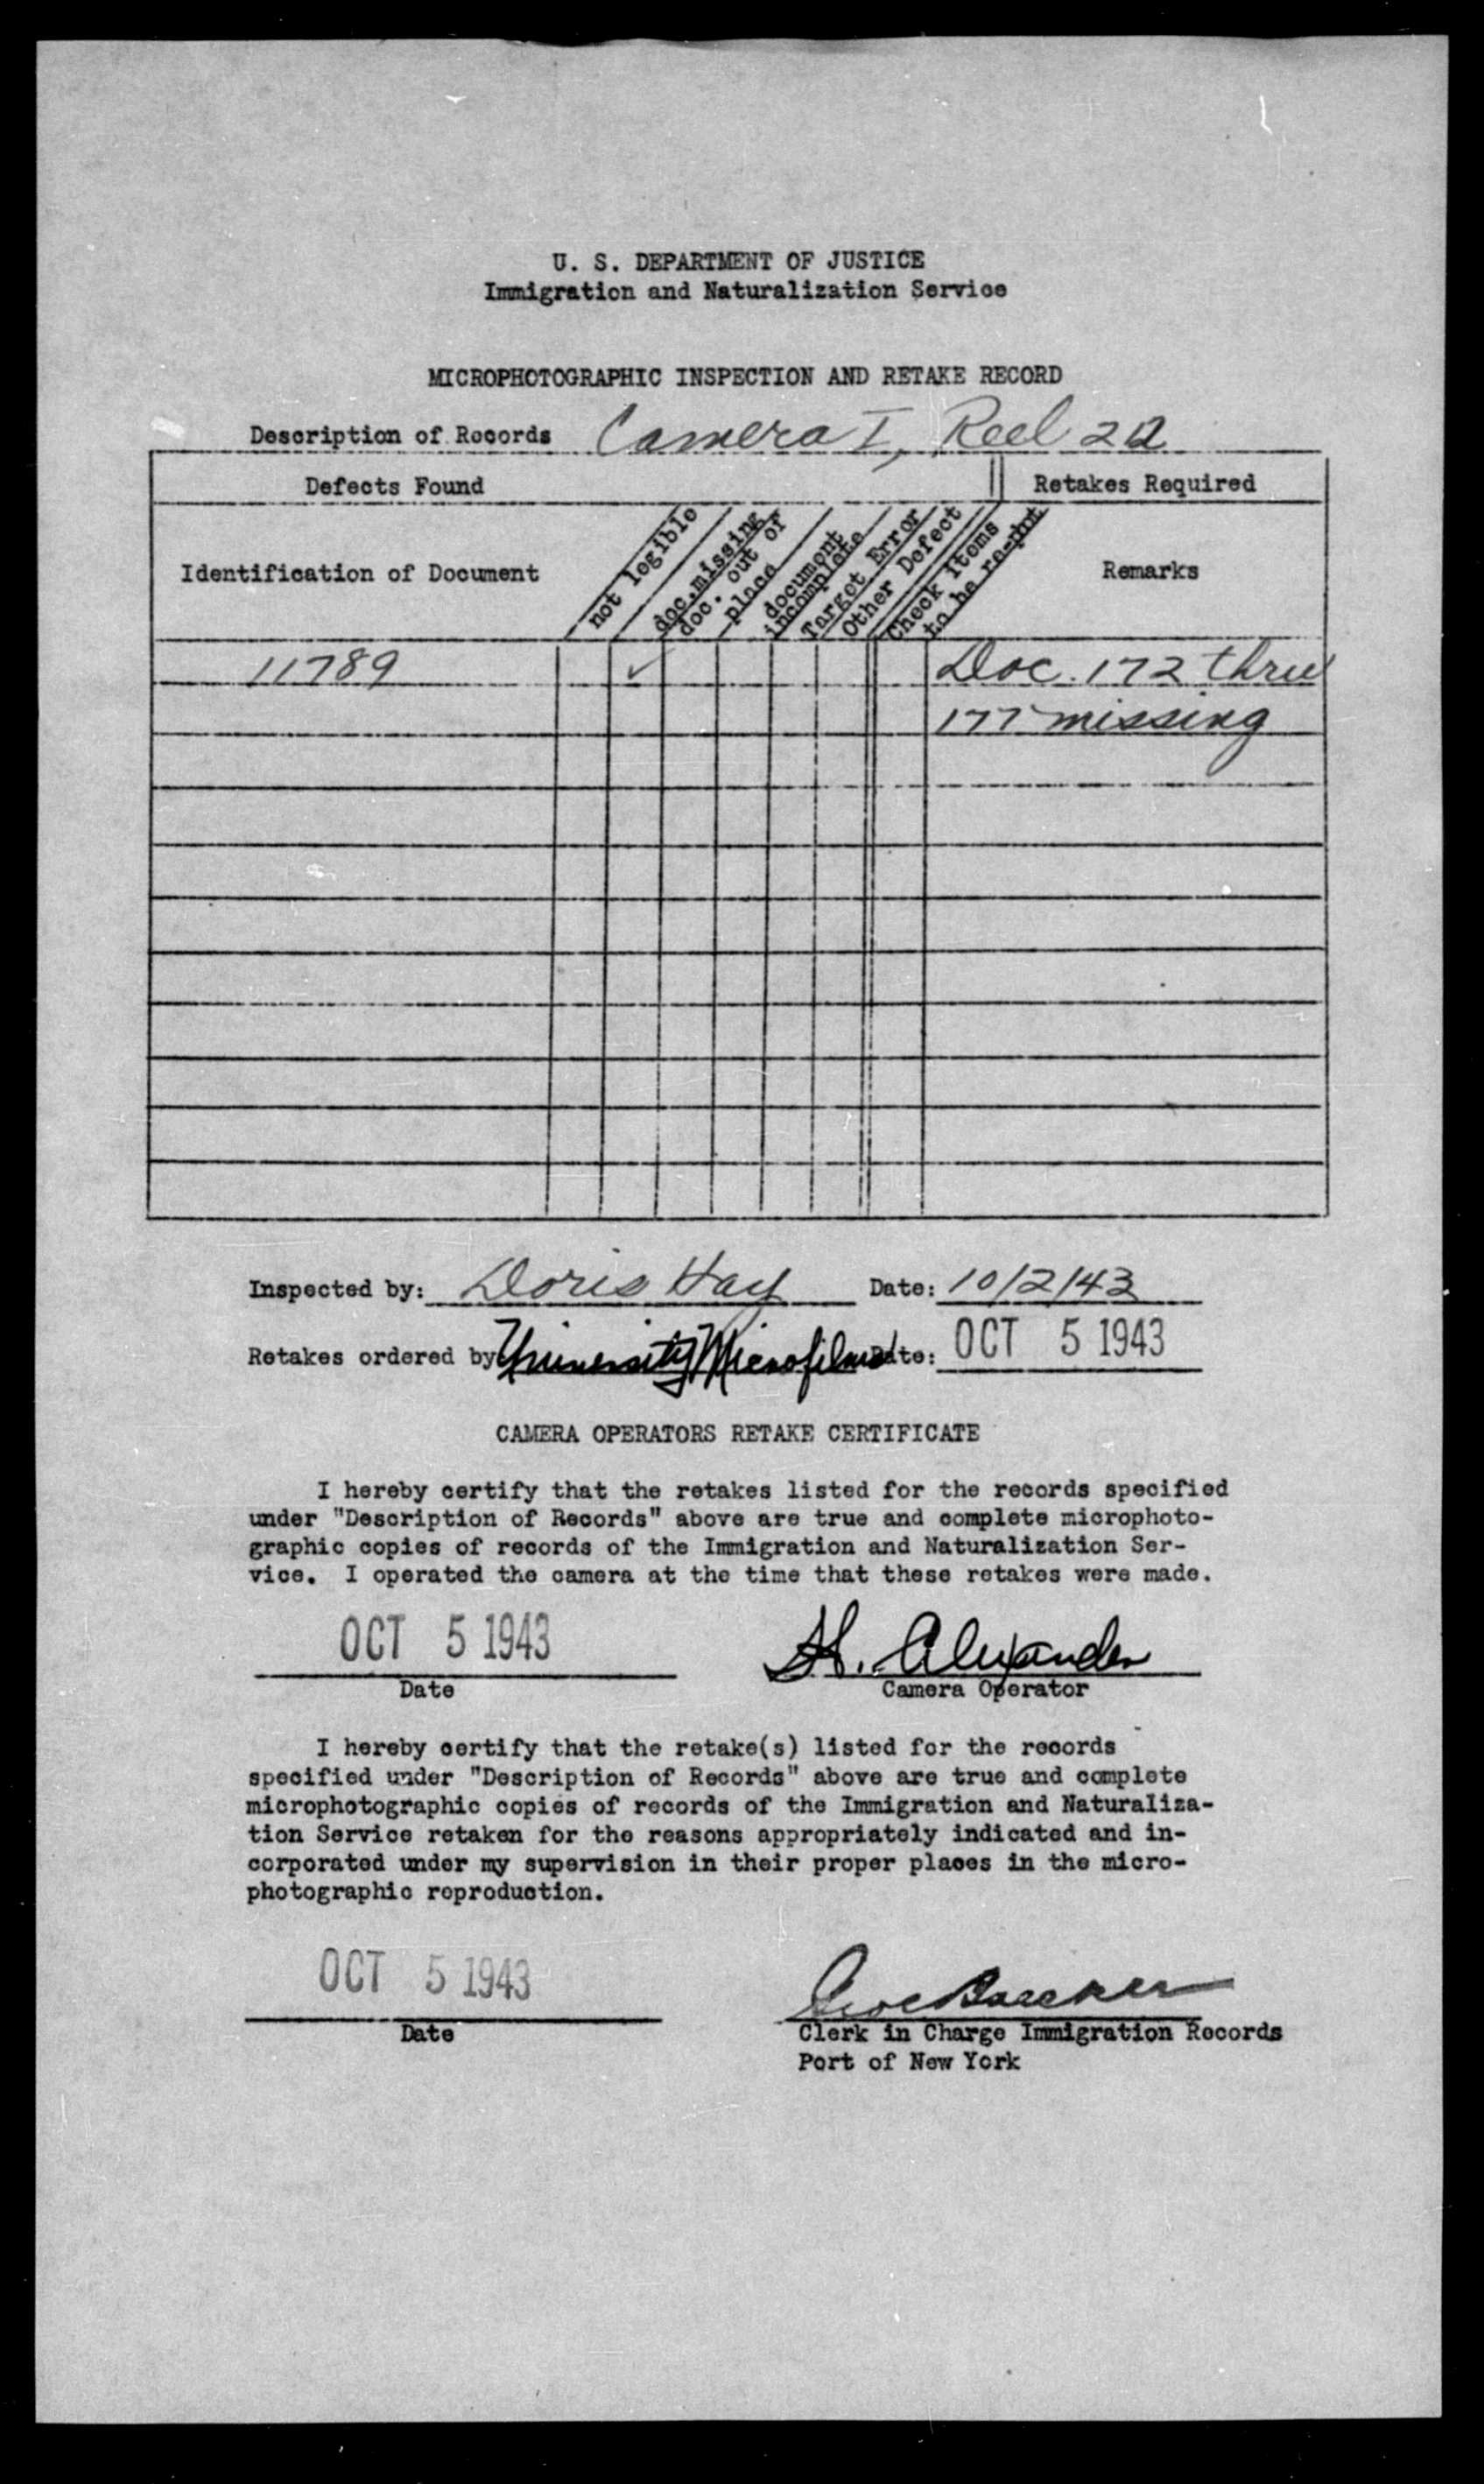 U. S. DEPARTMENT OF JUSTICE
Immigration and Naturalization Service
MICROPHOTOGRAPHIC INSPECTION AND RETAKE RECORD
Description of Records Camera I, Reel 22
Defects Found Retakes Required
Identification of Document
not legible
doc. missing
doc. out of
place
document
incomplete
Target Error
Other Defect
Check items
to be re-phot
Remarks
11789 ✓ Doc. 172 thru
177 missing
Inspected by: Doris Hay Date: 10/2/43
Retakes ordered by University Microfilms Date: OCT 5 1943
CAMERA OPERATORS RETAKE CERTIFICATE
I hereby certify that the retakes listed for the records specified
under "Description of Records" above are true and complete microphoto-
graphic copies of records of the Immigration and Naturalization Ser-
vice. I operated the camera at the time that these retakes were made.
OCT 5 1943 H. Alexander
Date Camera Operator
I hereby certify that the retake(s) listed for the records
specified under "Description of Records" above are true and complete
microphotographic copies of records of the Immigration and Naturaliza-
tion Service retaken for the reasons appropriately indicated and in-
corporated under my supervision in their proper places in the micro-
photographic reproduction.
OCT 5 1943
Date Clerk in Charge Immigration Records
Port of New York